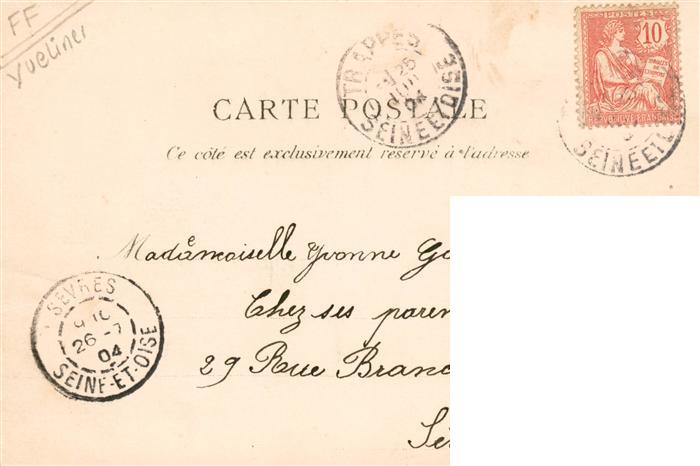 FF
Yvelines
TRAPPES
25
04
SEINE ET OISE
POSTES
10
RÉPUBLIQUE FRANÇAISE
SEINE ET
CARTE POSTALE
Ce côté est exclusivement réservé à l'adresse
Mademoiselle Yvonne
Chez ses
29 Rue
SEVRES
26 -7
04
SEINE-ET-OISE